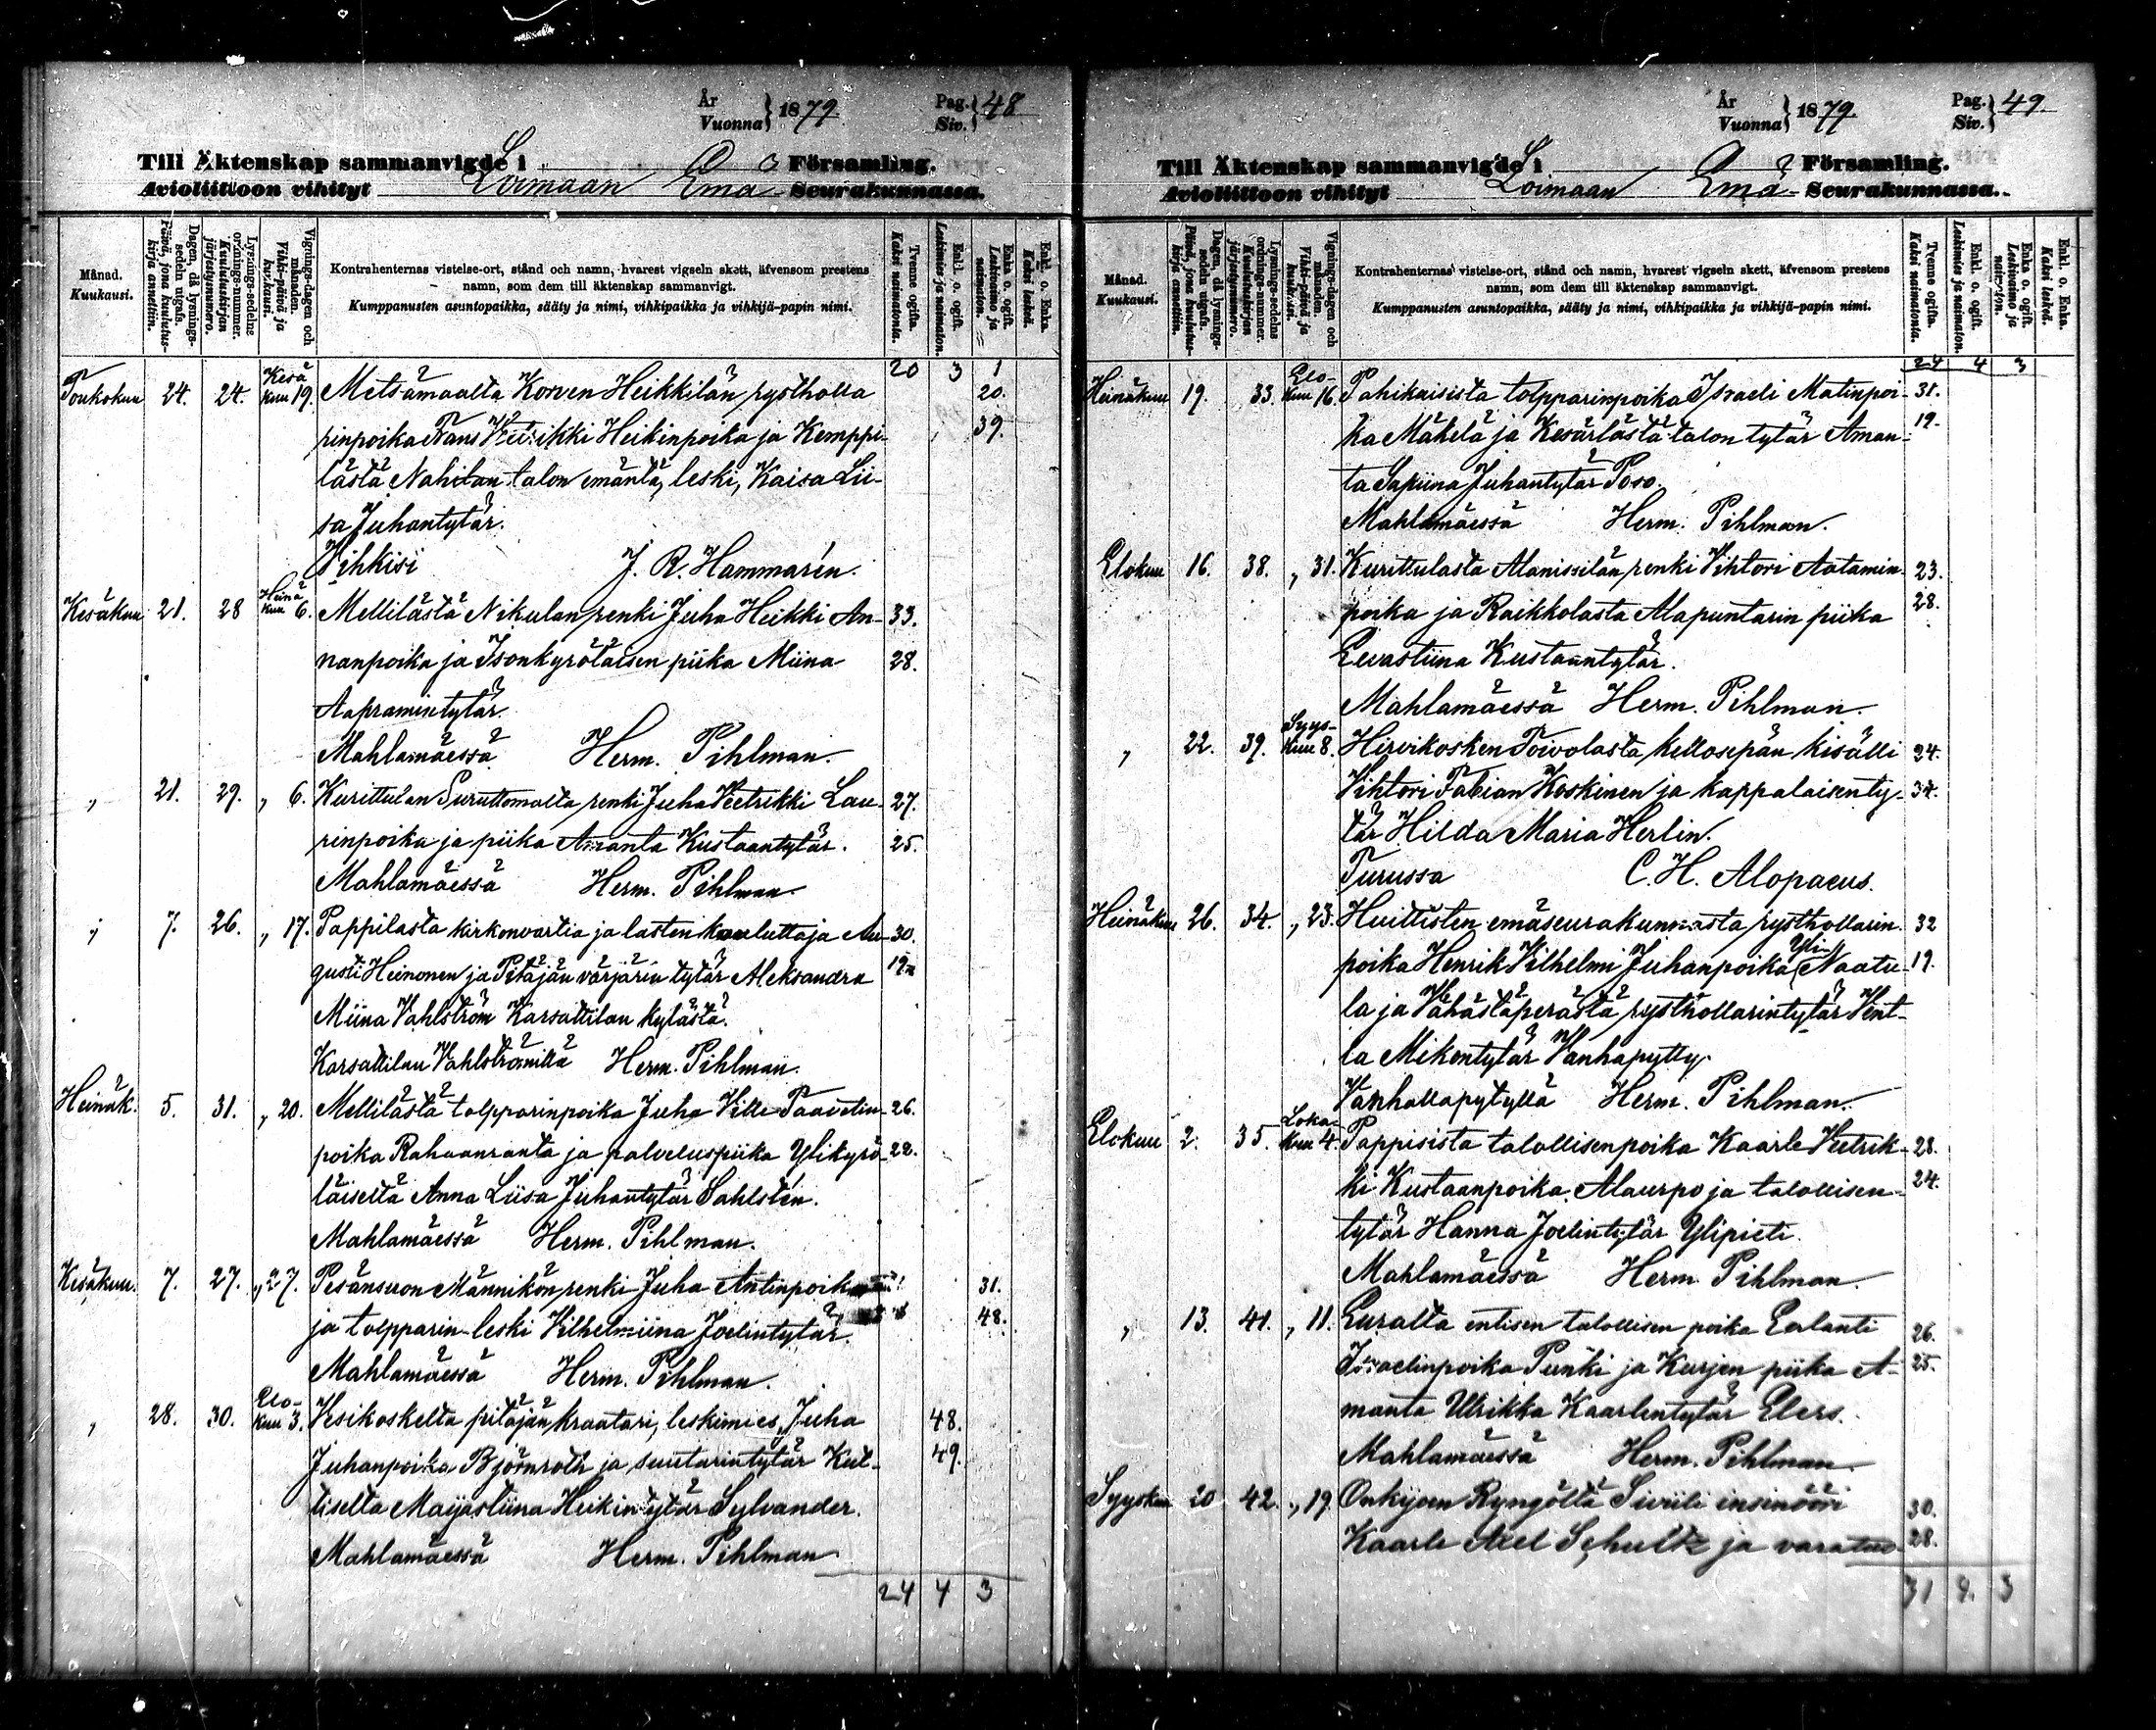 År
Vuonna } 1879.
Pag.
Siv. } 48
Till Äktenskap sammanvigde i Församling.
Avioliittoon vihityt Loimaan Emä Seurakunnassa.
Månad.
Kuukausi.
Dagen, då lysnings-sedeln utgafs.
Päivä, jona kuulutus-kirja annettiin.
Lysnings-sedelns ordnings-nummer.
Kuulutuskirjan järjestysnumero.
Vignings-dagen och månaden.
Vihki-päivä ja kuukausi.
Kontrahenternas vistelse-ort, stånd och namn, hvarest vigseln skett, äfvensom prestens
namn, som dem till äktenskap sammanvigt.
Kumppanusten asuntopaikka, sääty ja nimi, vihkipaikka ja vihkijä-papin nimi.
Tvenne ogifta.
Kaksi naimatonta.
Enkl. o. ogift.
Leskimies ja naimaton.
Enka o. ogift.
Leskivaimo ja naimaton.
Enkl. o. Enka.
Kaksi leskeä.
20 3 1
Toukokuu 24. 24. Kesäkuu 19. Metsämaalta Korven Heikkilän rysthollarinpoika 20.
Frans Vetrikki Heikinpoika ja Kemppi- 39.
lästä Nahilan talon emäntä, leski, Kaisa Lii-
sa Juhantytär.
Vihkisi J. R. Hammarén.
Kesäkuu 21. 28 Heinäkuu 6. Mellilästä Nikulan renki Juha Heikki An- 33.
nanpoika ja Isonkyrötalsen piika Miina 28.
Aapramintytär.
Mahlamäessä Herm. Pihlman.
„ 21. 29. „ 6. Kurittulan Suruttomalta renki Juha Vetrikki Lau- 27.
rinpoika ja piika Amanta Kustaantytär. 25.
Mahlamäessä Herm. Pihlman.
„ 7. 26. „ 17. Pappilasta kirkonvartia ja lasten kouluttaja Au- 30.
gusti Heinonen ja Pitäjän värjärin tytär Aleksandra 19.
Miina Vahlström Karsattilan kylästä.
Karsattilan Vahlströmillä Herm. Pihlman.
Heinäk. 5. 31. „ 20. Mellilästä tolpparinpoika Juha Ville Paavelin- 26.
poika Rahaanranta ja palveluspiika Ylikyrö- 22.
läiseltä Anna Liisa Juhantytär Sahlstén.
Mahlamäessä Herm. Pihlman.
Kesäkuu. 7. 27. „ 27. Pesänsuon Männikön renki Juha Antinpoika 31.
ja tolpparin leski Vilhelmiina Joelintytär. 48.
Mahlamäessä Herm. Pihlman.
„ 28. 30. Elokuu 3. Vesikoskelta pitäjän kraatari, leskimies, Juha 48.
Juhanpoika Björnroth ja suutarintytär Kul- 49.
tiselta Maijastiina Heikintytär Sylvander.
Mahlamäessä Herm. Pihlman
24 4 3
År
Vuonna } 1879.
Pag.
Siv. } 49.
Till Äktenskap sammanvigde i Församling.
Avioliittoon vihityt Loimaan Emä Seurakunnassa.
Månad.
Kuukausi.
Dagen, då lysnings-sedeln utgafs.
Päivä, jona kuulutus-kirja annettiin.
Lysnings-sedelns ordnings-nummer.
Kuulutuskirjan järjestysnumero.
Vignings-dagen och månaden.
Vihki-päivä ja kuukausi.
Kontrahenternas vistelse-ort, stånd och namn, hvarest vigseln skett, äfvensom prestens
namn, som dem till äktenskap sammanvigt.
Kumppanusten asuntopaikka, sääty ja nimi, vihkipaikka ja vihkijä-papin nimi.
Tvenne ogifta.
Kaksi naimatonta.
Enkl. o. ogift.
Leskimies ja naimaton.
Enka o. ogift.
Leskivaimo ja naimaton.
Enkl. o. Enka.
Kaksi leskeä.
24 4 3
Heinäkuu 19. 33. Elokuu 16. Pahikaisista tolpparinpoika Israeli Matinpoi- 31.
ka Mäkelä ja Kesärlästä talon tytär Aman- 19.
ta Sapiina Juhantytär Poso.
Mahlamäessä Herm. Pihlman.
Elokuu 16. 38. „ 31. Kurittulasta Alanissilän renki Vihtori Aatamin- 23.
poika ja Raikkolasta Alapuntarin piika 28.
Eevastiina Kustaantytär.
Mahlamäessä Herm. Pihlman.
„ 22. 39. Syyskuu 8. Hirvikosken Toivolasta kellosepän kisälli 24.
Vihtori Fabian Koskinen ja kappalaisenty- 34.
tär Hilda Maria Herlin.
Turussa C. H. Alopaeus.
Heinäkuu 26. 34. „ 23. Huittisten emäseurakunnasta rysthollarin- 32
poika Henrik Vilhelmi Juhanpoika Yli Naatu- 19.
la ja Vähästäperästä rysthollarintytär Vent-
la Mikontytär Vanhapytty.
Vanhallapytyllä Herm. Pihlman.
Elokuu 2. 35. Lokakuu 4. Pappisista talollisenpoika Kaarle Vetrik- 28.
ki Kustaanpoika Alaurpo ja talollisen- 24.
tytär Hanna Joelintytär Ylipieti.
Mahlamäessä Herm. Pihlman.
„ 13. 41. „ 11. Euralta entisen talollisen poika Eerlanti 26.
Israelinpoika Punki ja Kurjen piika A- 25.
manta Ulrikka Kaarlentytär Elers.
Mahlamäessä Herm. Pihlman.
Syyskuu 20 42. „ 19. Onkijoen Ryngöltä Siviili insinööri 30.
Kaarle Axel Schultz ja varatuo- 28.
31 4. 3